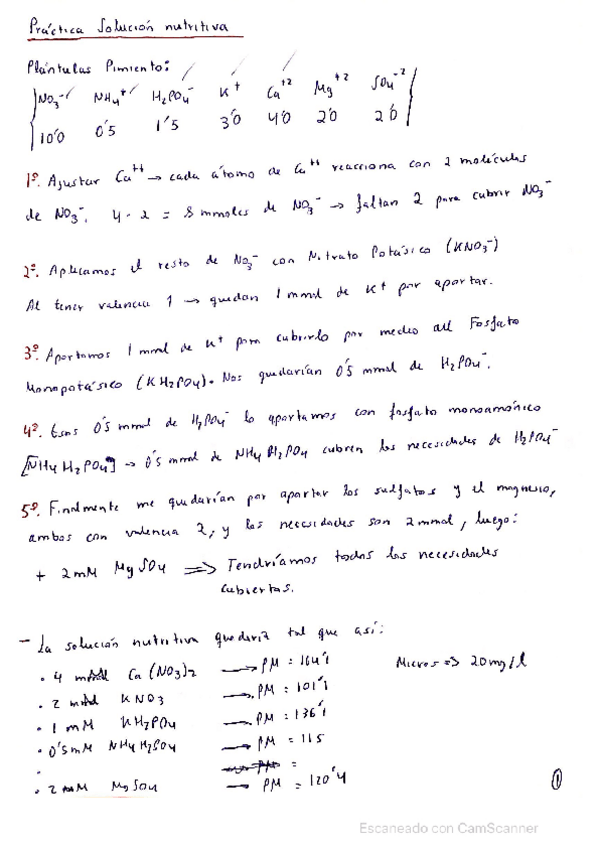 Práctica Solución nutritiva
Plántulas Pimiento:
NO3- NH4+ H2PO4- K+ Ca+2 Mg+2 SO4-2
10'0 0'5 1'5 3'0 4'0 2'0 2'0
1º. Ajustar Ca++ → cada átomo de Ca++ reacciona con 2 moléculas
de NO3-. 4·2 = 8 mmoles de NO3- → faltan 2 para cubrir NO3-
2º. Aplicamos el resto de NO3- con Nitrato Potásico (KNO3-)
Al tener valencia 1 → quedan 1 mmol de K+ por aportar.
3º. Aportamos 1 mmol de K+ para cubrirlo por medio del Fosfato
Monopotásico (KH2PO4). Nos quedarían 0'5 mmol de H2PO4-.
4º. Esos 0'5 mmol de H2PO4- lo aportamos con fosfato monoamónico
[NH4H2PO4] → 0'5 mmol de NH4H2PO4 cubren las necesidades de H2PO4-
5º. Finalmente me quedarían por aportar los sulfatos y el magnesio,
ambos con valencia 2, y las necesidades son 2 mmol, luego:
+ 2mM MgSO4 ⇒ Tendríamos todas las necesidades
cubiertas.
- La solución nutritiva quedaría tal que así:
• 4 mmol Ca(NO3)2 → PM = 164'1 Micros ⇒ 20 mg/l
• 2 mmol KNO3 → PM = 101'1
• 1 mM KH2PO4 → PM = 136'1
• 0'5 mM NH4H2PO4 → PM = 115
• =
• 2 mM MgSO4 → PM = 120'4
1
Escaneado con CamScanner